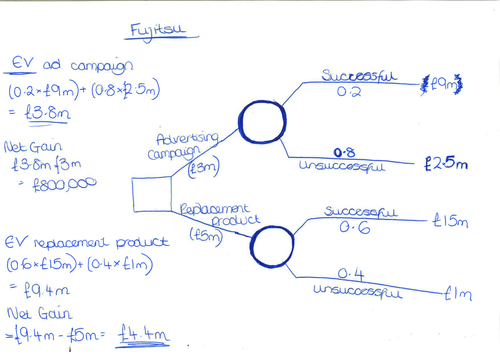 Fujitsu
EV ad campaign
(0.2×£9m)+(0.8×£2.5m)
= £3.8m
Net Gain
£3.8m-£3m
= £800,000
EV replacement product
(0.6×£15m)+(0.4×£1m)
= £9.4m
Net Gain
=£9.4m - £5m = £4.4m
Advertising
campaign
(£3m)
Replacement
product
(£5m)
Successful
0.2
£9m
0.8
unsuccessful
£2.5m
Successful
0.6
£15m
0.4
unsuccessful
£1m